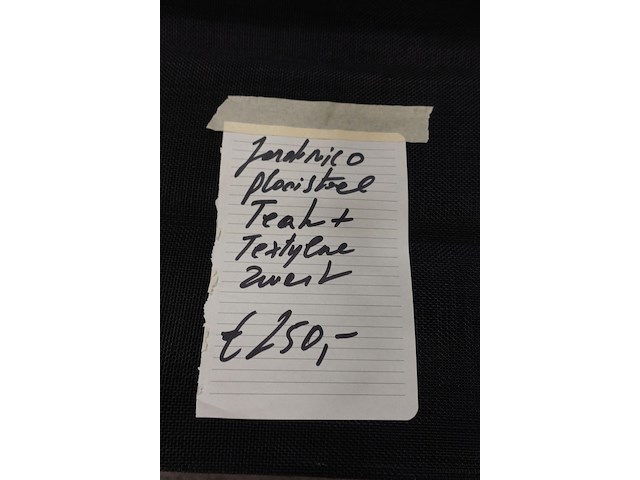 Jardinico
plooistoel
Teak +
Textylene
zwart
€ 250,-